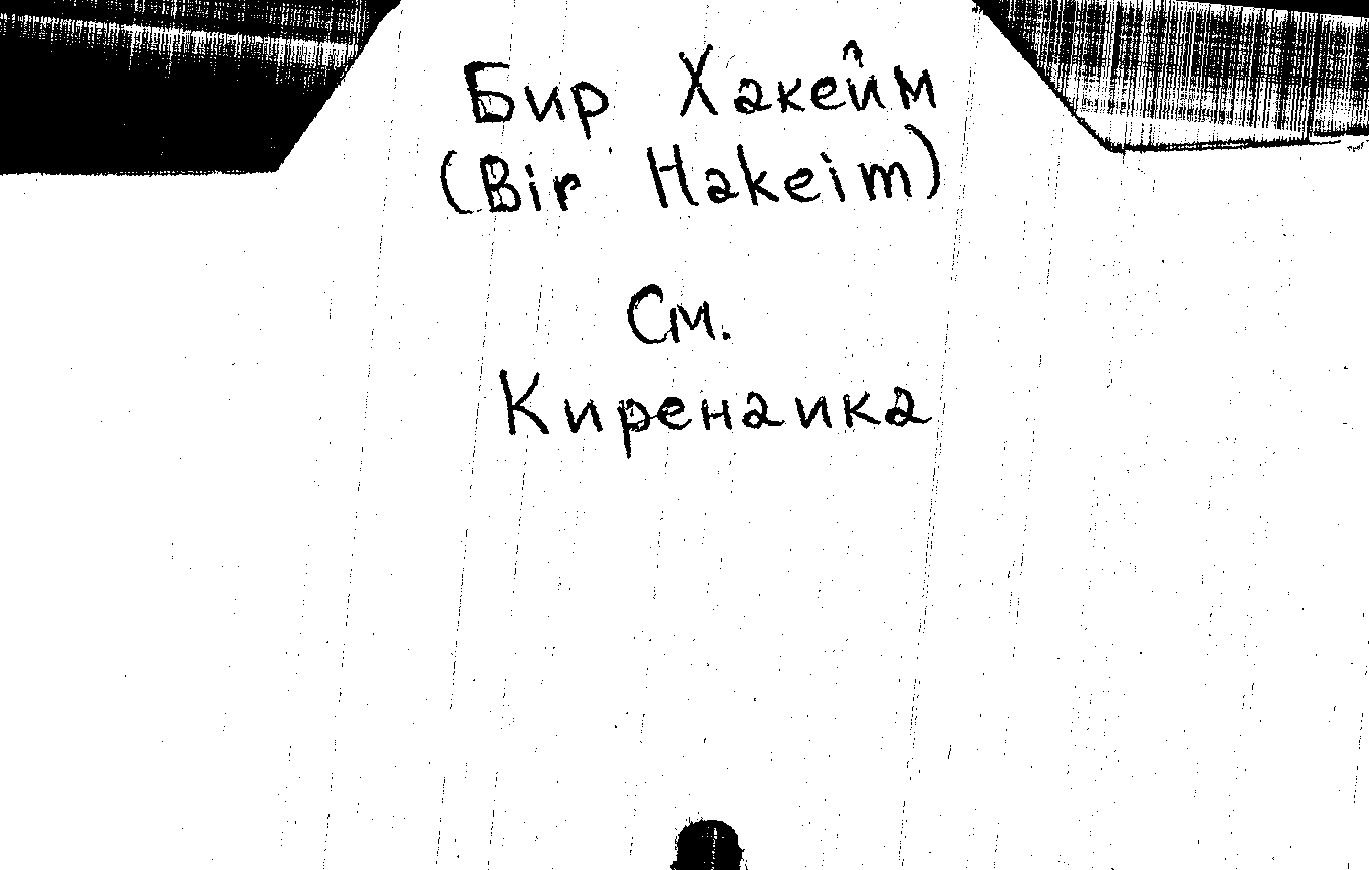 Бир Хакейм
(Bir Hakeim)
См.
Киренаика